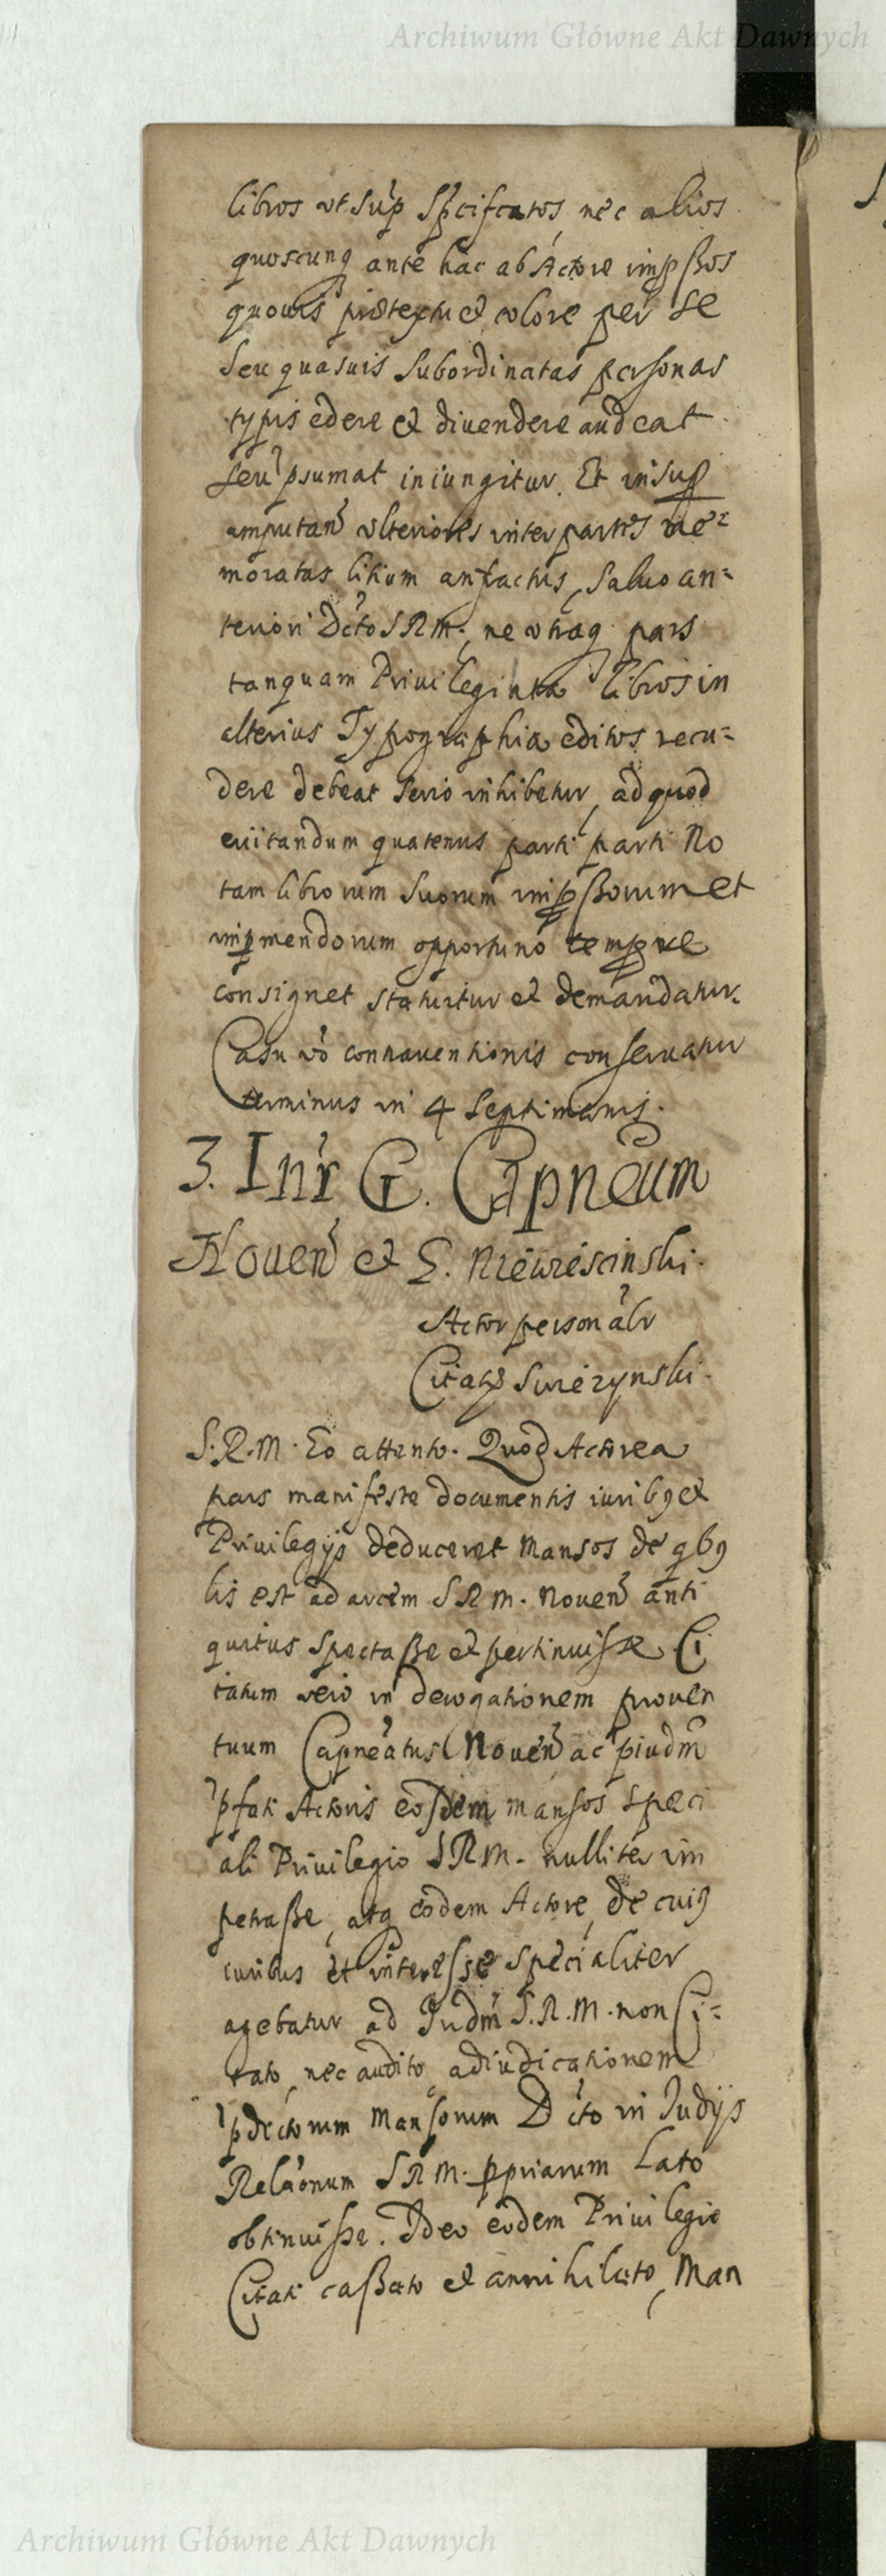 Archiwum Główne Akt Dawnych
libros vt sup spcificatos, nec alios
quoscunq ante hac ab Actore impssos
quouis prætextu et colore per se
seu quasuis subordinatas personas
typis edere et diuendere audeat
seu psumat iniungitur. Et insup
amputan vlteriores inter partes me=
moratas litium anfractus, saluo an=
teriori Dcto SRM. ne vtraq pars
tanquam Priuilegiata libros in
alterius Typographia editos recu=
dere debeat serio inhibetur, ad quod
euitandum quatenus parti parti No
tam librorum suorum impssorum et
impmendorum opportuno tempre
consignet statuitur et demandatur.
Casu vo contrauentionis conseruatur
terminus in 4 septimanis.
3. Intr G. Capneum
Nouen et G. Niewiescinski.
Actor personalr
Citatus Swiezynski.
S.R.M. Eo attento. Quod Actorea
pars manifeste documentis iurib9 et
Priuilegijs deduceret Mansos de qb9
lis est ad arcem SRM. Nouen anti
quitus spectasse et pertinuisse Ci
tatum vero in derogationem prouen
tuum Capneatus Nouen ac piudm
pfati Actoris eosdem mansos speci
ali Priuilegio SRM. nulliter im
petrasse, atq eodem Actore, de cui9
iuribus et interesse specialiter
agebatur ad Judm S.R.M. non Ci=
tato, nec audito, adiudicationem
pdictorum Mansorum Dcto in Judijs
Relaonum SRM. ppriarum Lato
obtinuisse. Ideo eodem Priuilegio
Citati cassato et annihilato, Man
Archiwum Główne Akt Dawnych